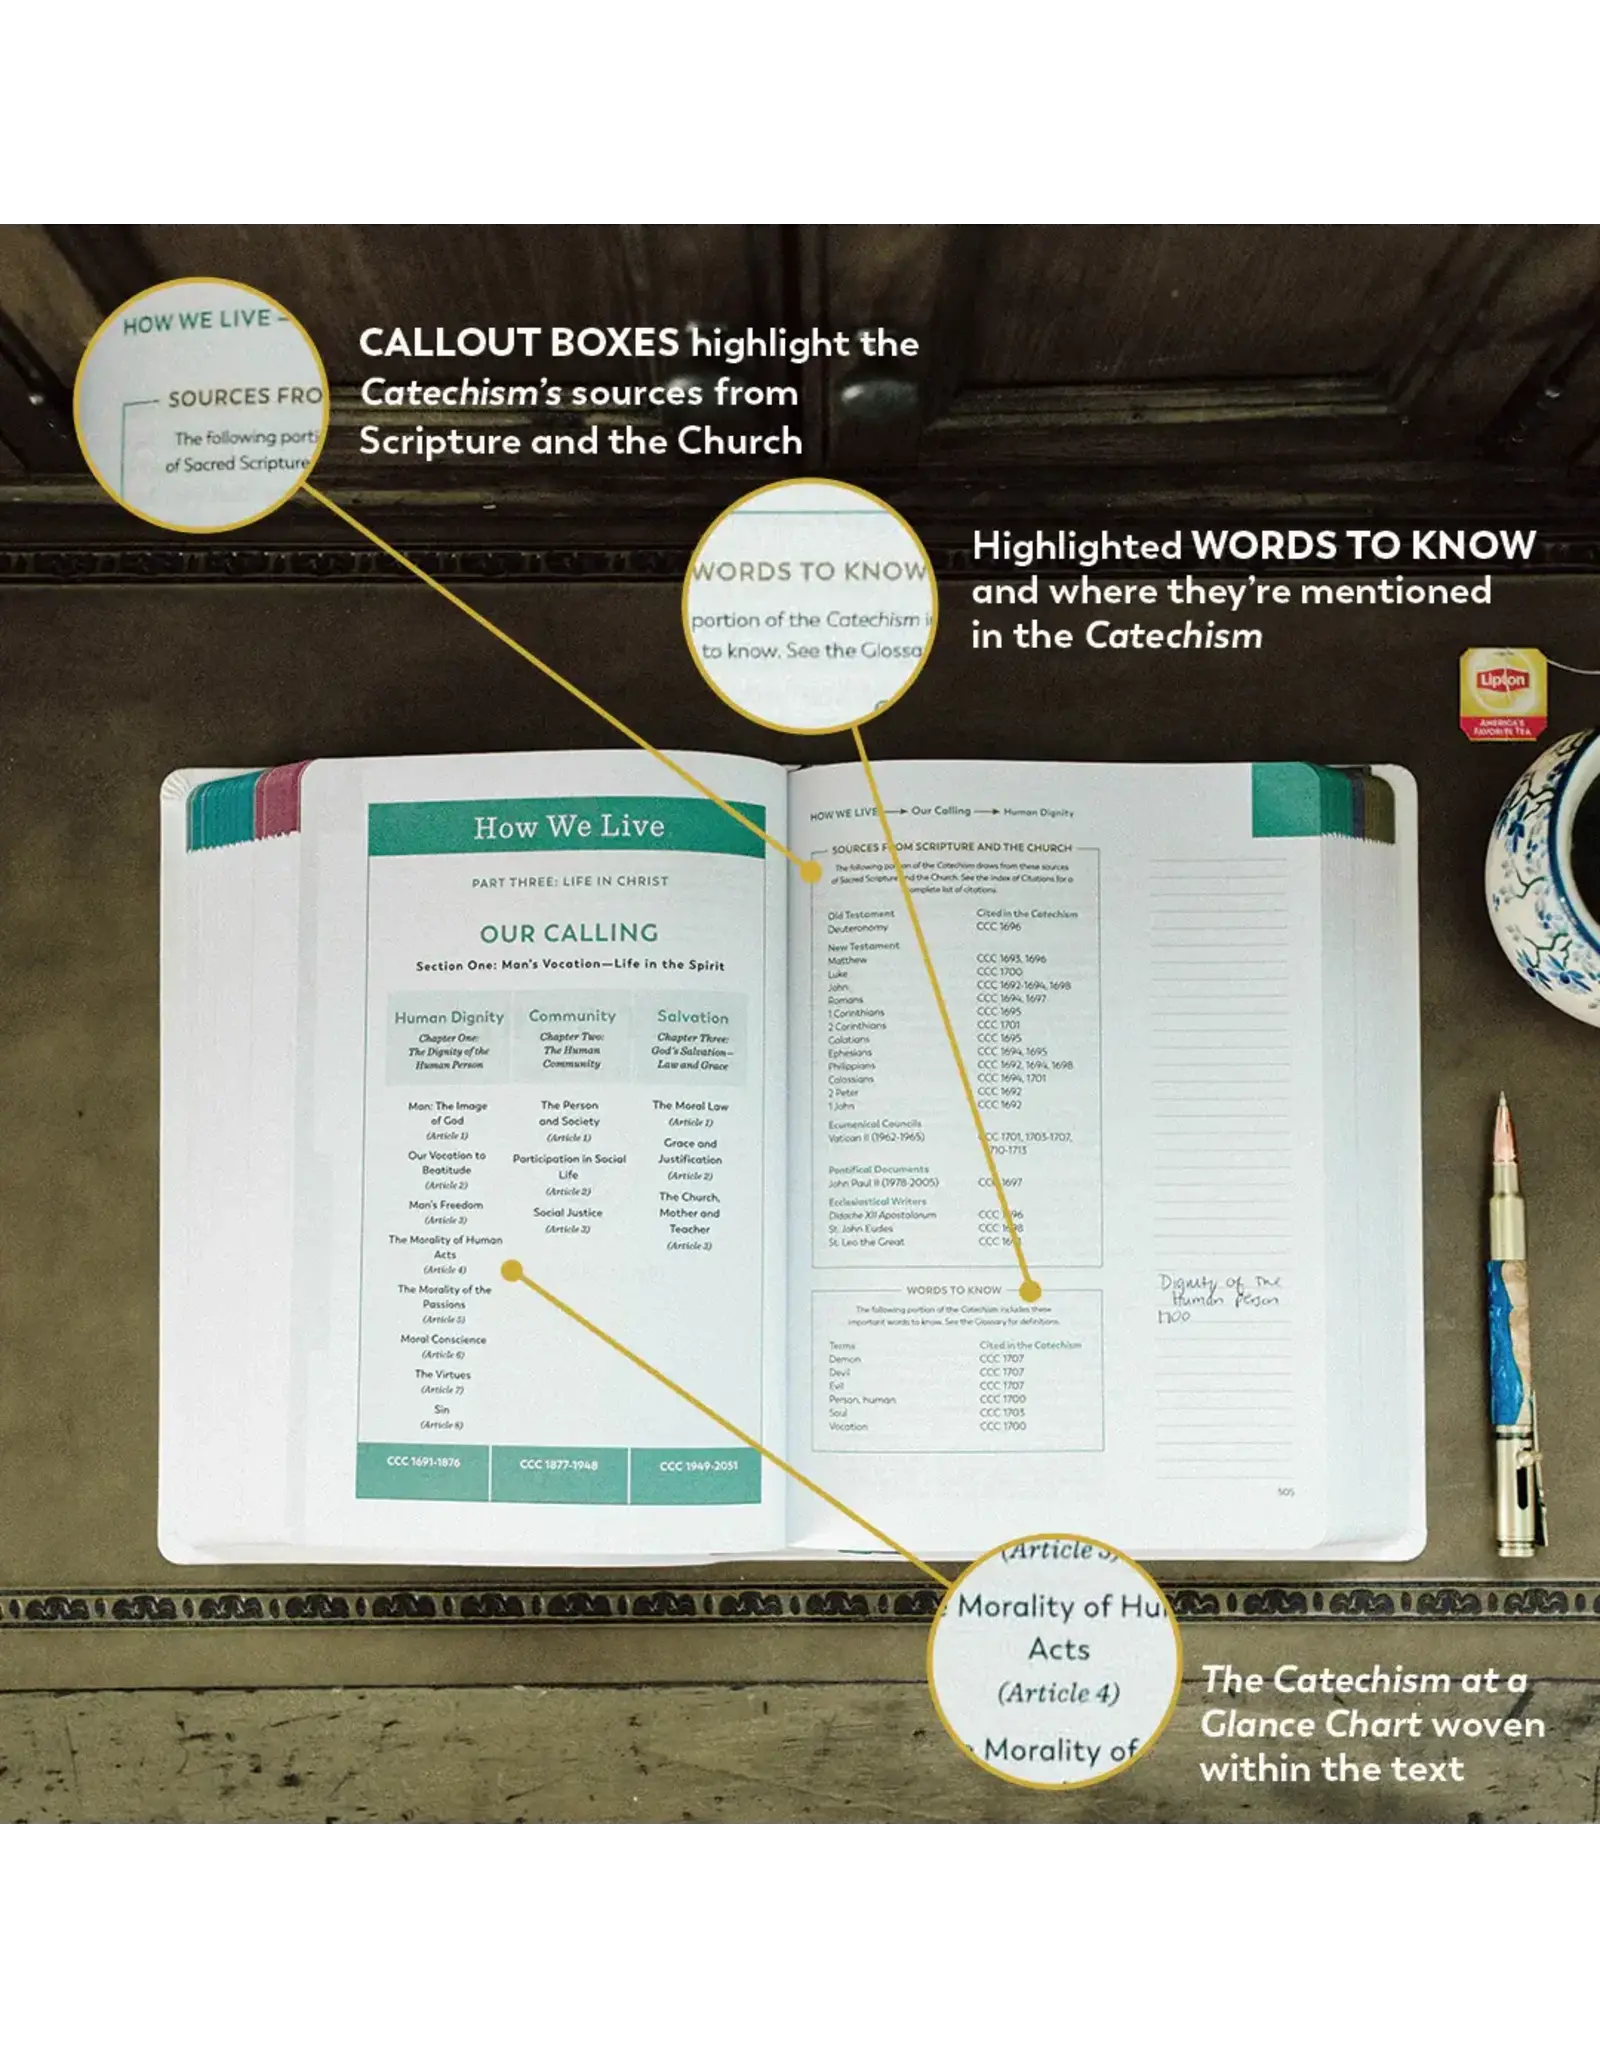 HOW WE LIVE
SOURCES FRO
The following porti
of Sacred Scripture
CALLOUT BOXES highlight the
Catechism's sources from
Scripture and the Church
WORDS TO KNOW
portion of the Catechism i
to know. See the Glossa
Highlighted WORDS TO KNOW
and where they're mentioned
in the Catechism
Lipton
AMERICA'S
FAVORITE TEA
How We Live
PART THREE: LIFE IN CHRIST
OUR CALLING
Section One: Man's Vocation—Life in the Spirit
Human Dignity
Chapter One:
The Dignity of the
Human Person
Man: The Image
of God
(Article 1)
Our Vocation to
Beatitude
(Article 2)
Man's Freedom
(Article 3)
The Morality of Human
Acts
(Article 4)
The Morality of the
Passions
(Article 5)
Moral Conscience
(Article 6)
The Virtues
(Article 7)
Sin
(Article 8)
CCC 1691-1876
Community
Chapter Two:
The Human
Community
The Person
and Society
(Article 1)
Participation in Social
Life
(Article 2)
Social Justice
(Article 3)
CCC 1877-1948
Salvation
Chapter Three:
God's Salvation—
Law and Grace
The Moral Law
(Article 1)
Grace and
Justification
(Article 2)
The Church,
Mother and
Teacher
(Article 3)
CCC 1949-2051
HOW WE LIVE → Our Calling → Human Dignity
SOURCES FROM SCRIPTURE AND THE CHURCH
The following portion of the Catechism draws from these sources
of Sacred Scripture and the Church. See the Index of Citations for a
complete list of citations.
Old Testament Cited in the Catechism
Deuteronomy CCC 1696
New Testament
Matthew CCC 1693, 1696
Luke CCC 1700
John CCC 1692-1694, 1698
Romans CCC 1694, 1697
1 Corinthians CCC 1695
2 Corinthians CCC 1701
Galatians CCC 1695
Ephesians CCC 1694, 1695
Philippians CCC 1692, 1694, 1698
Colossians CCC 1694, 1701
2 Peter CCC 1692
1 John CCC 1692
Ecumenical Councils
Vatican II (1962-1965) CCC 1701, 1703-1707,
1710-1713
Pontifical Documents
John Paul II (1978-2005) CCC 1697
Ecclesiastical Writers
Didache XII Apostolorum CCC 1696
St. John Eudes CCC 1698
St. Leo the Great CCC
WORDS TO KNOW
The following portion of the Catechism includes these
important words to know. See the Glossary for definitions.
Terms Cited in the Catechism
Demon CCC 1707
Devil CCC 1707
Evil CCC 1707
Person, human CCC 1700
Soul CCC 1703
Vocation CCC 1700
Dignity of the
Human Person
1700
505
(Article 3)
Morality of Hu
Acts
(Article 4)
Morality of
The Catechism at a
Glance Chart woven
within the text